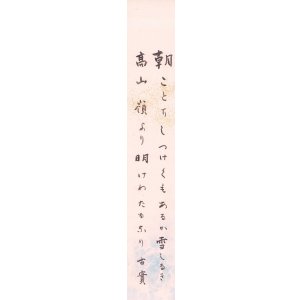 朝ことにしつけくもあるか雪しろき
高山の嶺より明けわたるなり 吉實